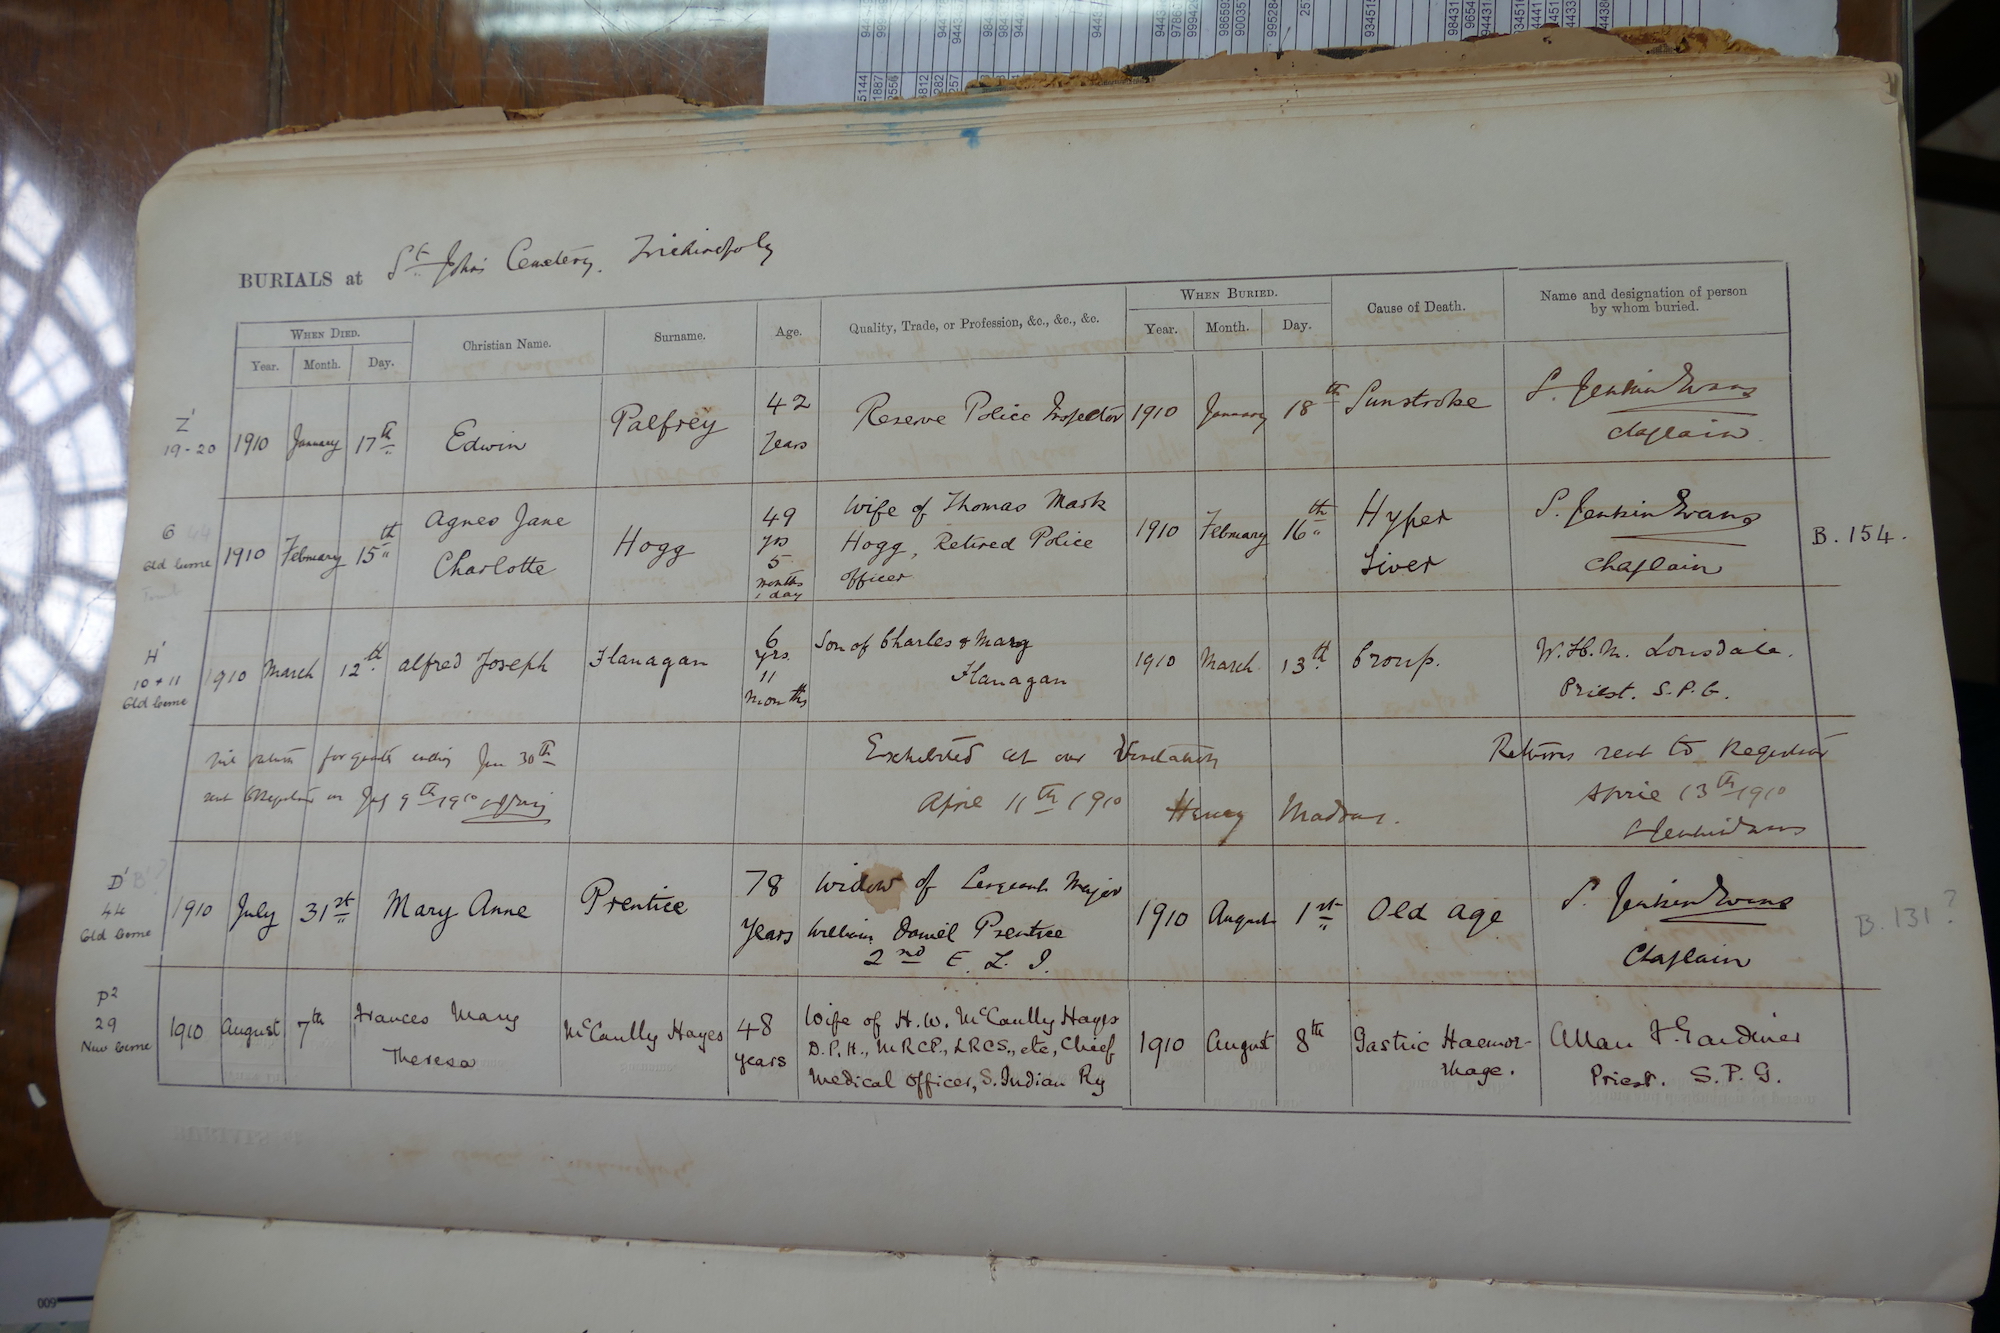 BURIALS at St. John's Cemetery, Trichinopoly
WHEN DIED.
Year. Month. Day.
Christian Name.
Surname.
Age.
Quality, Trade, or Profession, &c., &c., &c.
WHEN BURIED.
Year. Month. Day.
Cause of Death.
Name and designation of person
by whom buried.
Z'
19-20
1910 January 17th Edwin Palfrey 42
years
Reserve Police Inspector 1910 January 18th Sunstroke S. Jenkin Evans
Chaplain.
6
Old Cerne
1910 February 15th Agnes Jane
Charlotte
Hogg
49
yrs
5
months
1 day
Wife of Thomas Mark
Hogg, Retired Police
Officer
1910 February 16th Hyper
Liver
S. Jenkin Evans
Chaplain
B. 154.
H'
10 + 11
Old Cerne
1910 March 12th Alfred Joseph Flanagan
6
yrs.
11
months
Son of Charles & Mary
Flanagan
1910 March 13th Croup. W. H. M. Lonsdale.
Priest. S.P.G.
return for quarter ending June 30th
sent Registrar on July 9th 1910
Exhibited at our Visitation
April 11th 1910 Henry Madras.
Returns sent to Registrar
April 13th 1910
S Jenkin Evans
D'
44
Old Cerne
1910 July 31st Mary Anne Prentice 78
years
Widow of Sergeant Major
William Daniel Prentice
2nd E. L. I.
1910 August 1st Old Age S. Jenkin Evans
Chaplain
B. 131?
P2
29
New Cerne
1910 August 7th Frances Mary
Theresa
McCaully Hayes 48
years
Wife of H. W. McCaully Hayes
D.P.H., MRCP., LRCS., etc, Chief
Medical Officer, S. Indian Ry
1910 August 8th Gastric Haemor-
rhage.
Allan F. Gardiner
Priest. S. P. G.